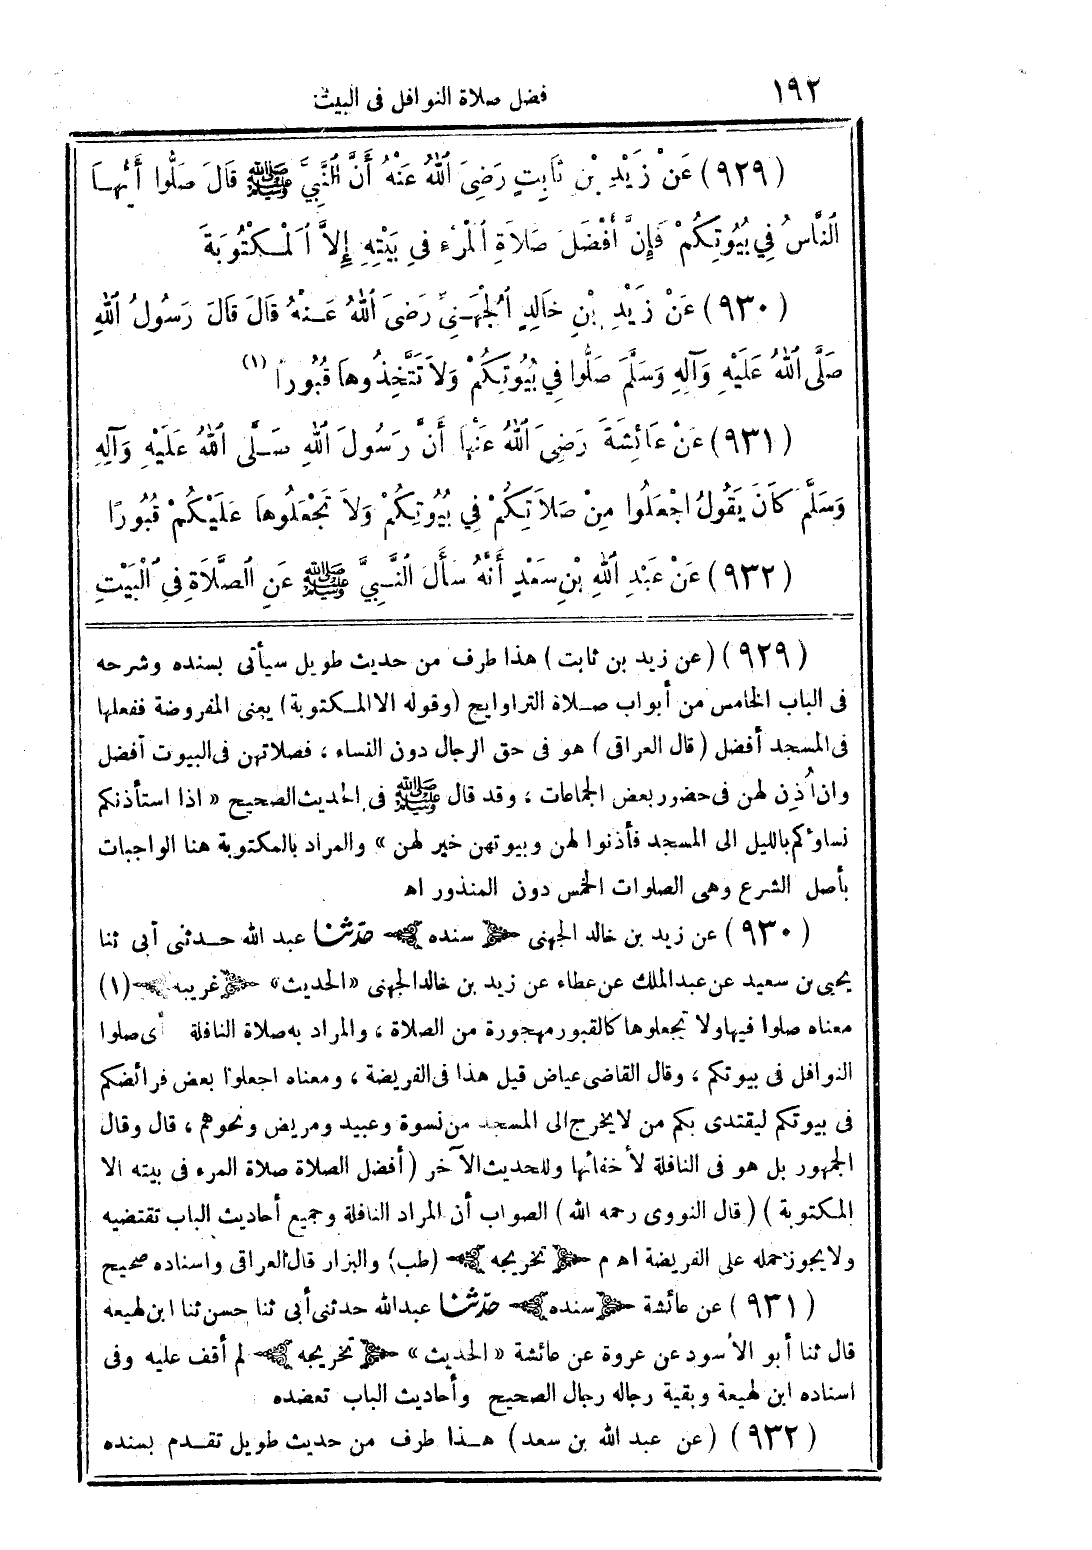 ١٩٢
فضل صلاة النوافل فى البيت
(٩٢٩) عَنْ زَيْدِ بْنِ ثَابِتٍ رَضِيَ اللهُ عَنْهُ أَنَّ النَّبِيَّ ﷺ قَالَ صَلُّوا أَيُّهَا
النَّاسُ فِي بُيُوتِكُمْ فَإِنَّ أَفْضَلَ صَلاَةِ الْمَرْءِ فِي بَيْتِهِ إِلاَّ الْمَكْتُوبَةَ
(٩٣٠) عَنْ زَيْدِ بْنِ خَالِدٍ الْجُهَنِيِّ رَضِيَ اللهُ عَنْهُ قَالَ قَالَ رَسُولُ اللهِ
صَلَّى اللهُ عَلَيْهِ وَآلِهِ وَسَلَّمَ صَلُّوا فِي بُيُوتِكُمْ وَلاَ تَتَّخِذُوهَا قُبُورًا (١)
(٩٣١) عَنْ عَائِشَةَ رَضِيَ اللهُ عَنْهَا أَنَّ رَسُولَ اللهِ صَلَّى اللهُ عَلَيْهِ وَآلِهِ
وَسَلَّمَ كَانَ يَقُولُ اجْعَلُوا مِنْ صَلاَتِكُمْ فِي بُيُوتِكُمْ وَلاَ تَجْعَلُوهَا عَلَيْكُمْ قُبُورًا
(٩٣٢) عَنْ عَبْدِ اللهِ بْنِ سَعْدٍ أَنَّهُ سَأَلَ النَّبِيَّ ﷺ عَنِ الصَّلاَةِ فِي الْبَيْتِ
(٩٢٩) (عن زيد بن ثابت) هذا طرف من حديث طويل سيأتى بسنده وشرحه
فى الباب الخامس من أبواب صلاة التراوايح (وقوله الا المكتوبة) يعنى المفروضة ففعلها
فى المسجد أفضل (قال العراقى) هو فى حق الرجال دون النساء ، فصلاتهن فى البيوت أفضل
وان أُذِن لهن فى حضور بعض الجماعات ، وقد قال ﷺ فى الحديث الصحيح « اذا استأذنكم
نساؤكم بالليل الى المسجد فأذنوا لهن وبيوتهن خير لهن » والمراد بالمكتوبة هنا الواجبات
بأصل الشرع وهى الصلوات الخمس دون المنذور اه
(٩٣٠) عن زيد بن خالد الجهنى ﴿ سنده ﴾ حدّثنا عبد الله حدثنى أبى ثنا
يحيى بن سعيد عن عبد الملك عن عطاء عن زيد بن خالد الجهنى «الحديث» ﴿ غريبه ﴾ (١)
معناه صلوا فيها ولا تجعلوها كالقبور مهجورة من الصلاة ، والمراد به صلاة النافلة أى صلوا
النوافل فى بيوتكم ، وقال القاضى عياض قيل هذا فى الفريضة ، ومعناه اجعلوا بعض فرائضكم
فى بيوتكم ليقتدى بكم من لا يخرج الى المسجد من نسوة وعبيد ومريض ونحوهم ، قال وقال
الجمهور بل هو فى النافلة لأخفائها وللحديث الآخر (أفضل الصلاة صلاة المرء فى بيته الا
المكتوبة) (قال النووى رحمه الله) الصواب أن المراد النافلة وجميع أحاديث الباب تقتضيه
ولا يجوز حمله على الفريضة اه م ﴿ تخريجه ﴾ (طب) والبزار قال العراقى واسناده صحيح
(٩٣١) عن عائشة ﴿ سنده ﴾ حدّثنا عبد الله حدثنى أبى ثنا حسن ثنا ابن لهيعة
قال ثنا أبو الأسود عن عروة عن عائشة «الحديث» ﴿ تخريجه ﴾ لم أقف عليه وفى
اسناده ابن لهيعة وبقية رجاله رجال الصحيح وأحاديث الباب تعضده
(٩٣٢) (عن عبد الله بن سعد) هذا طرف من حديث طويل تقدم بسنده